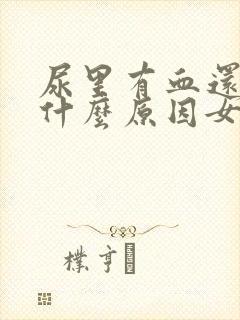 尿里有血還
什麼原因女
樸亨